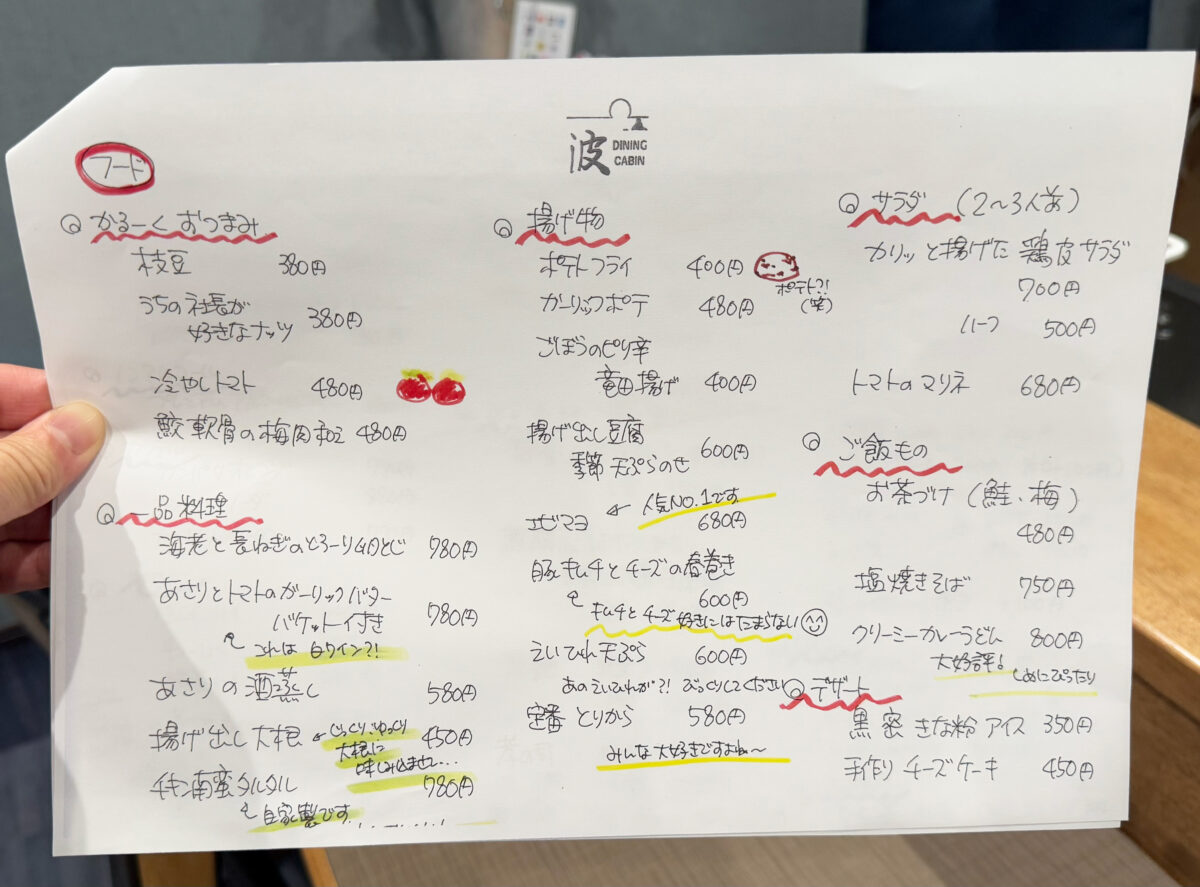 波 DINING
CABIN
フード
かるーくおつまみ
枝豆 380円
うちの社長が
好きなナッツ 380円
冷やしトマト 480円
鮫軟骨の梅肉和え 480円
一品料理
海老と長ねぎのとろーり卵とじ 780円
あさりとトマトのガーリックバター
バケット付き 780円
これは白ワイン?!
あさりの酒蒸し 580円
揚げ出し大根 450円
じっくりゆっくり
大根に
味しみ込ませ...
チキン南蛮タルタル 780円
自家製です......
揚げ物
ポテトフライ 400円
ポテト?!
(笑)
ガーリックポテ 480円
ごぼうのピリ辛
竜田揚げ 400円
揚げ出し豆腐
季節天ぷらのせ 600円
人気NO.1です
エビマヨ 680円
豚キムチとチーズの春巻き
600円
キムチとチーズ好きにはたまらない
えいひれ天ぷら 600円
あのえいひれが?! びっくりしてください
定番 とりから 580円
みんな大好きですよね〜
サラダ (2〜3人前)
カリッと揚げた 鶏皮サラダ
700円
ハーフ 500円
トマトのマリネ 680円
ご飯もの
お茶づけ (鮭・梅)
480円
塩焼きそば 750円
クリーミーカレーうどん 800円
大好評!
しめにぴったり
デザート
黒密 きな粉 アイス 350円
手作り チーズケーキ 450円